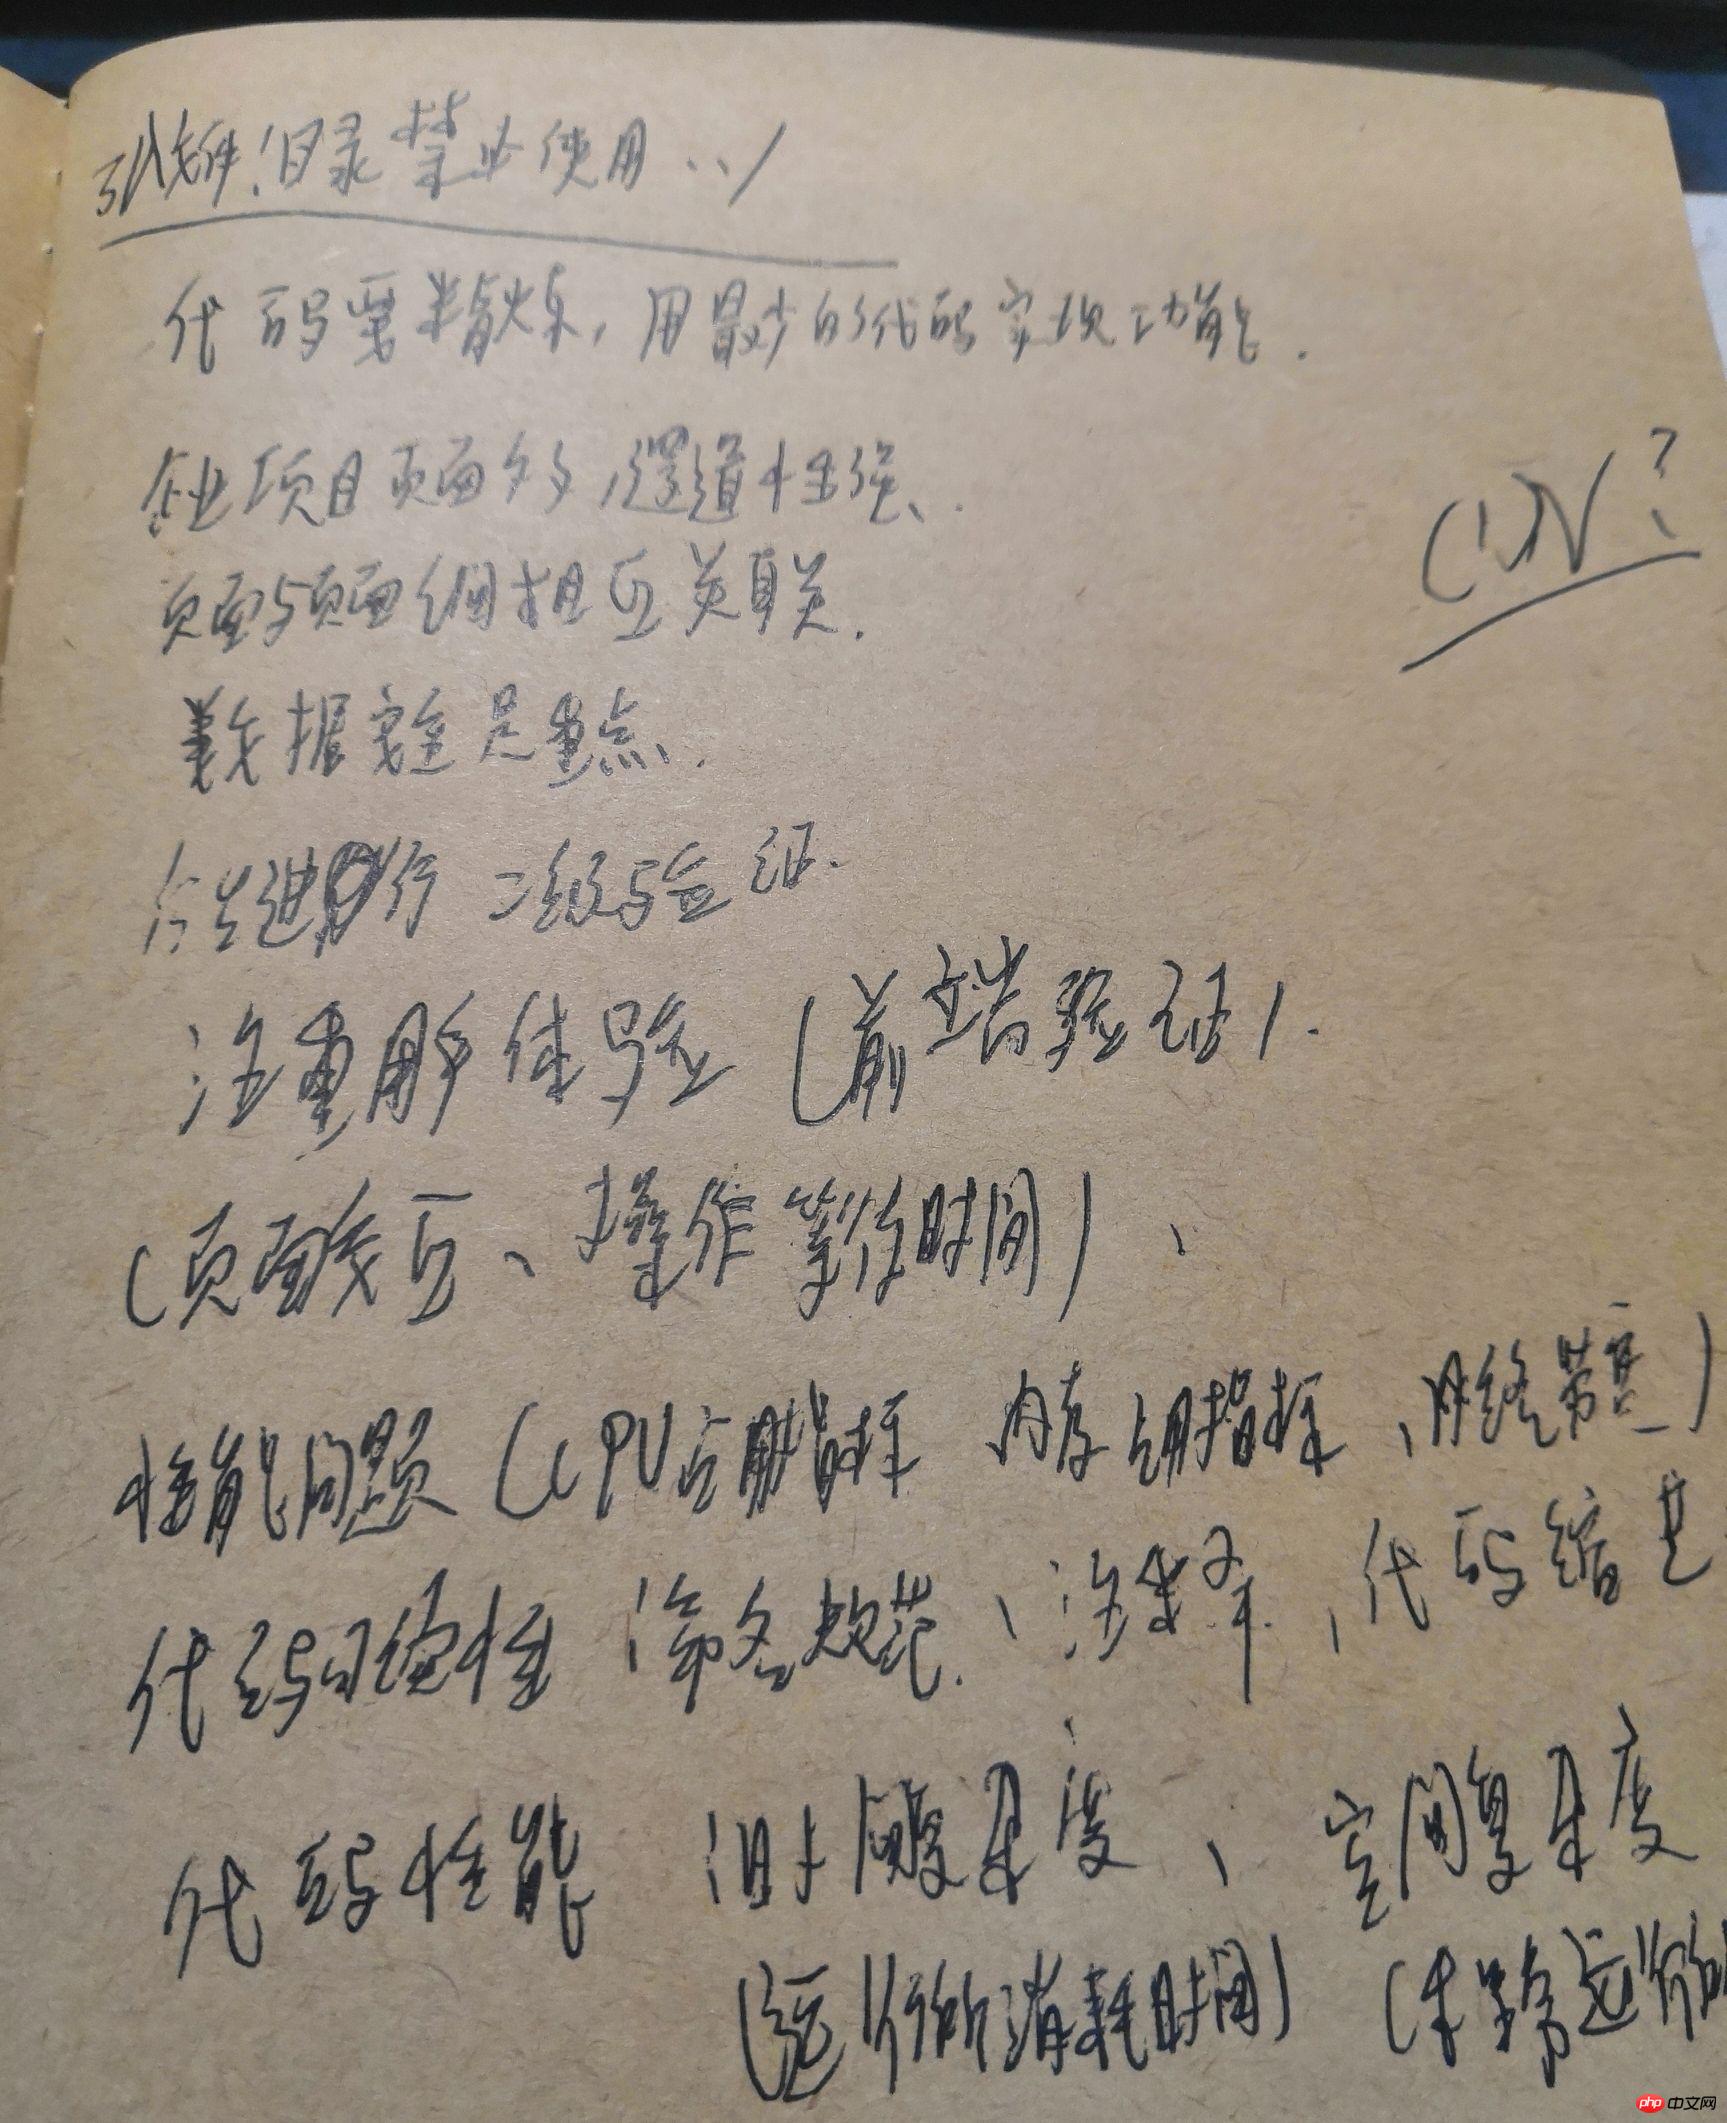 引入文件!目录禁止使用../
代码要精炼,用最少的代码实现功能.
企业项目页面多,逻辑性强、.
CDN?
页面与页面之间相互关联.
数据安全是重点、.
后台进行二次验证.
注重用户体验(前端验证).
(页面交互、操作等待时间)、
性能问题(CPU占用指标 内存占用指标、网络带宽)
代码可读性(命名规范、注释、代码缩进
代码性能 时间复杂度、空间复杂度
(运行所消耗时间)(本身运行
php 中文网